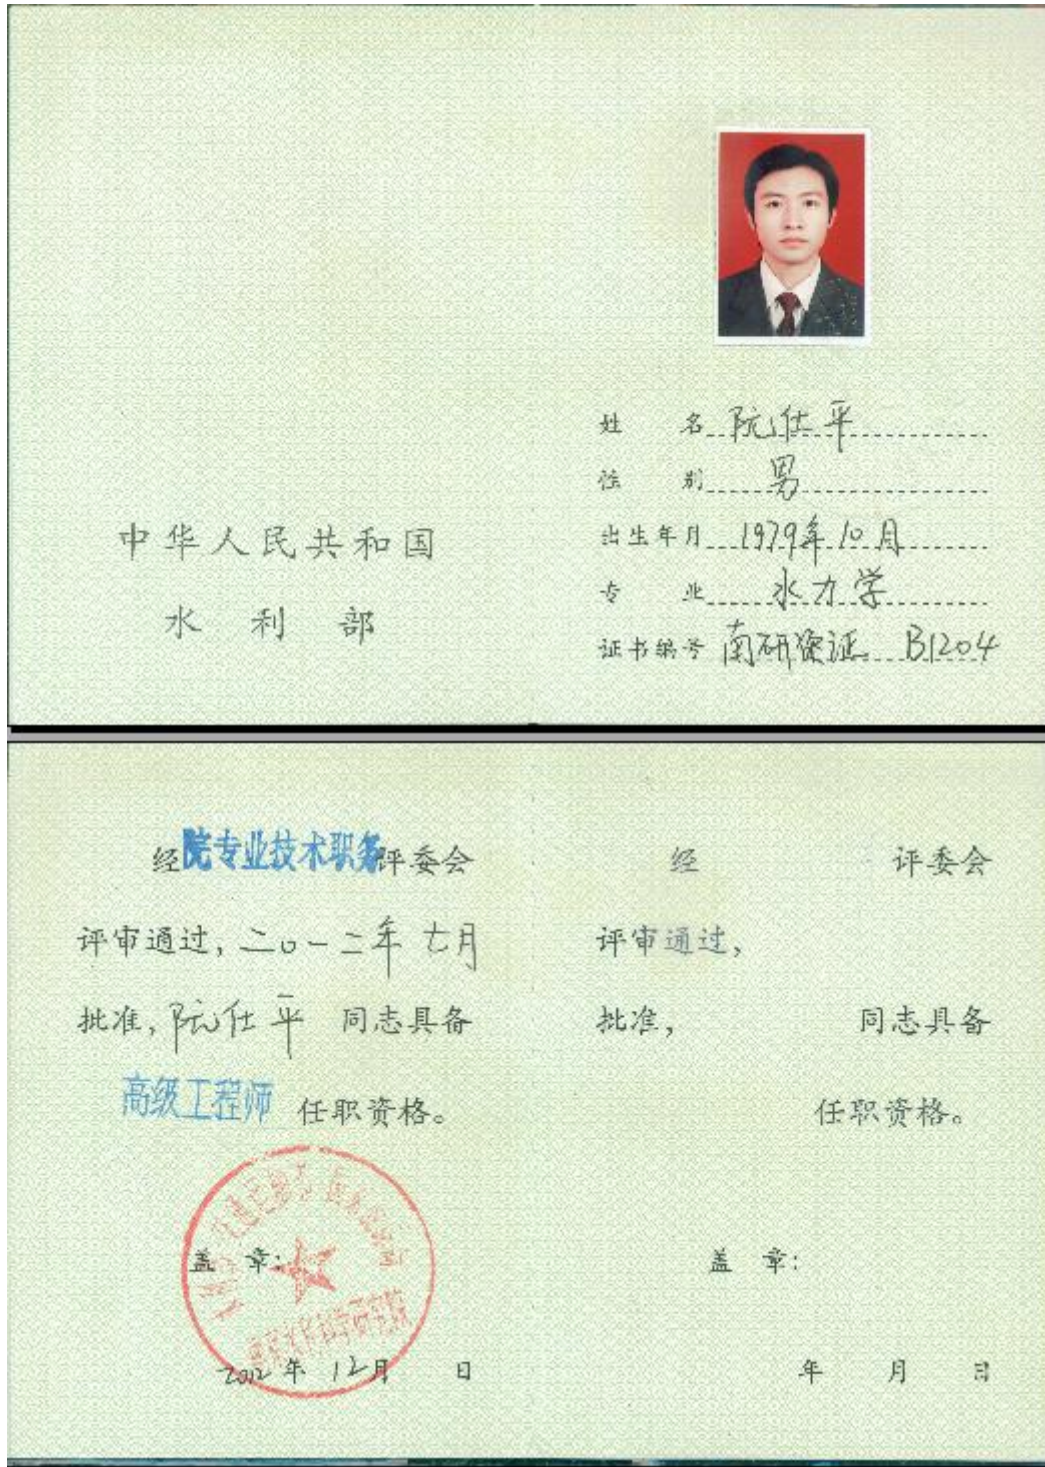 中华人民共和国
水利部
姓名 阮仕平
性别 男
出生年月 1979年10月
专业 水力学
证书编号 南研资证 B1204
经院专业技术职务评委会
评审通过,二〇一二年七月
批准,阮仕平 同志具备
高级工程师 任职资格。
南京水利科学研究院
盖章:
2012年12月 日
经 评委会
评审通过,
批准, 同志具备
任职资格。
盖章:
年 月 日